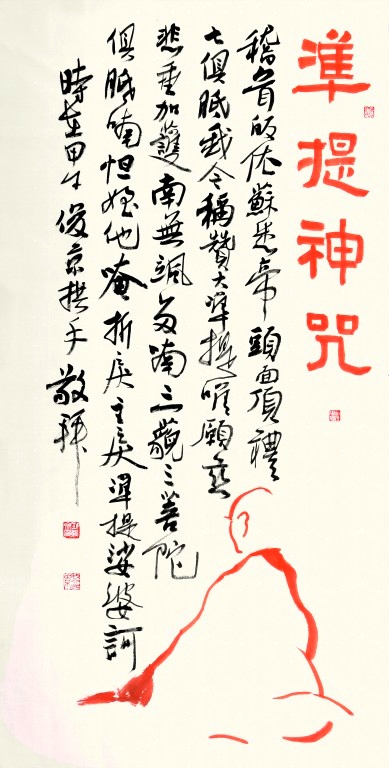 準提神咒
稽首皈依蘇悉帝頭面頂禮
七俱胝我今稱讚大準提唯願慈
悲垂加護南無颯哆喃三藐三菩陀
俱胝喃怛姪他唵折戾主戾準提娑婆訶
時在甲午俊京拱手敬拜